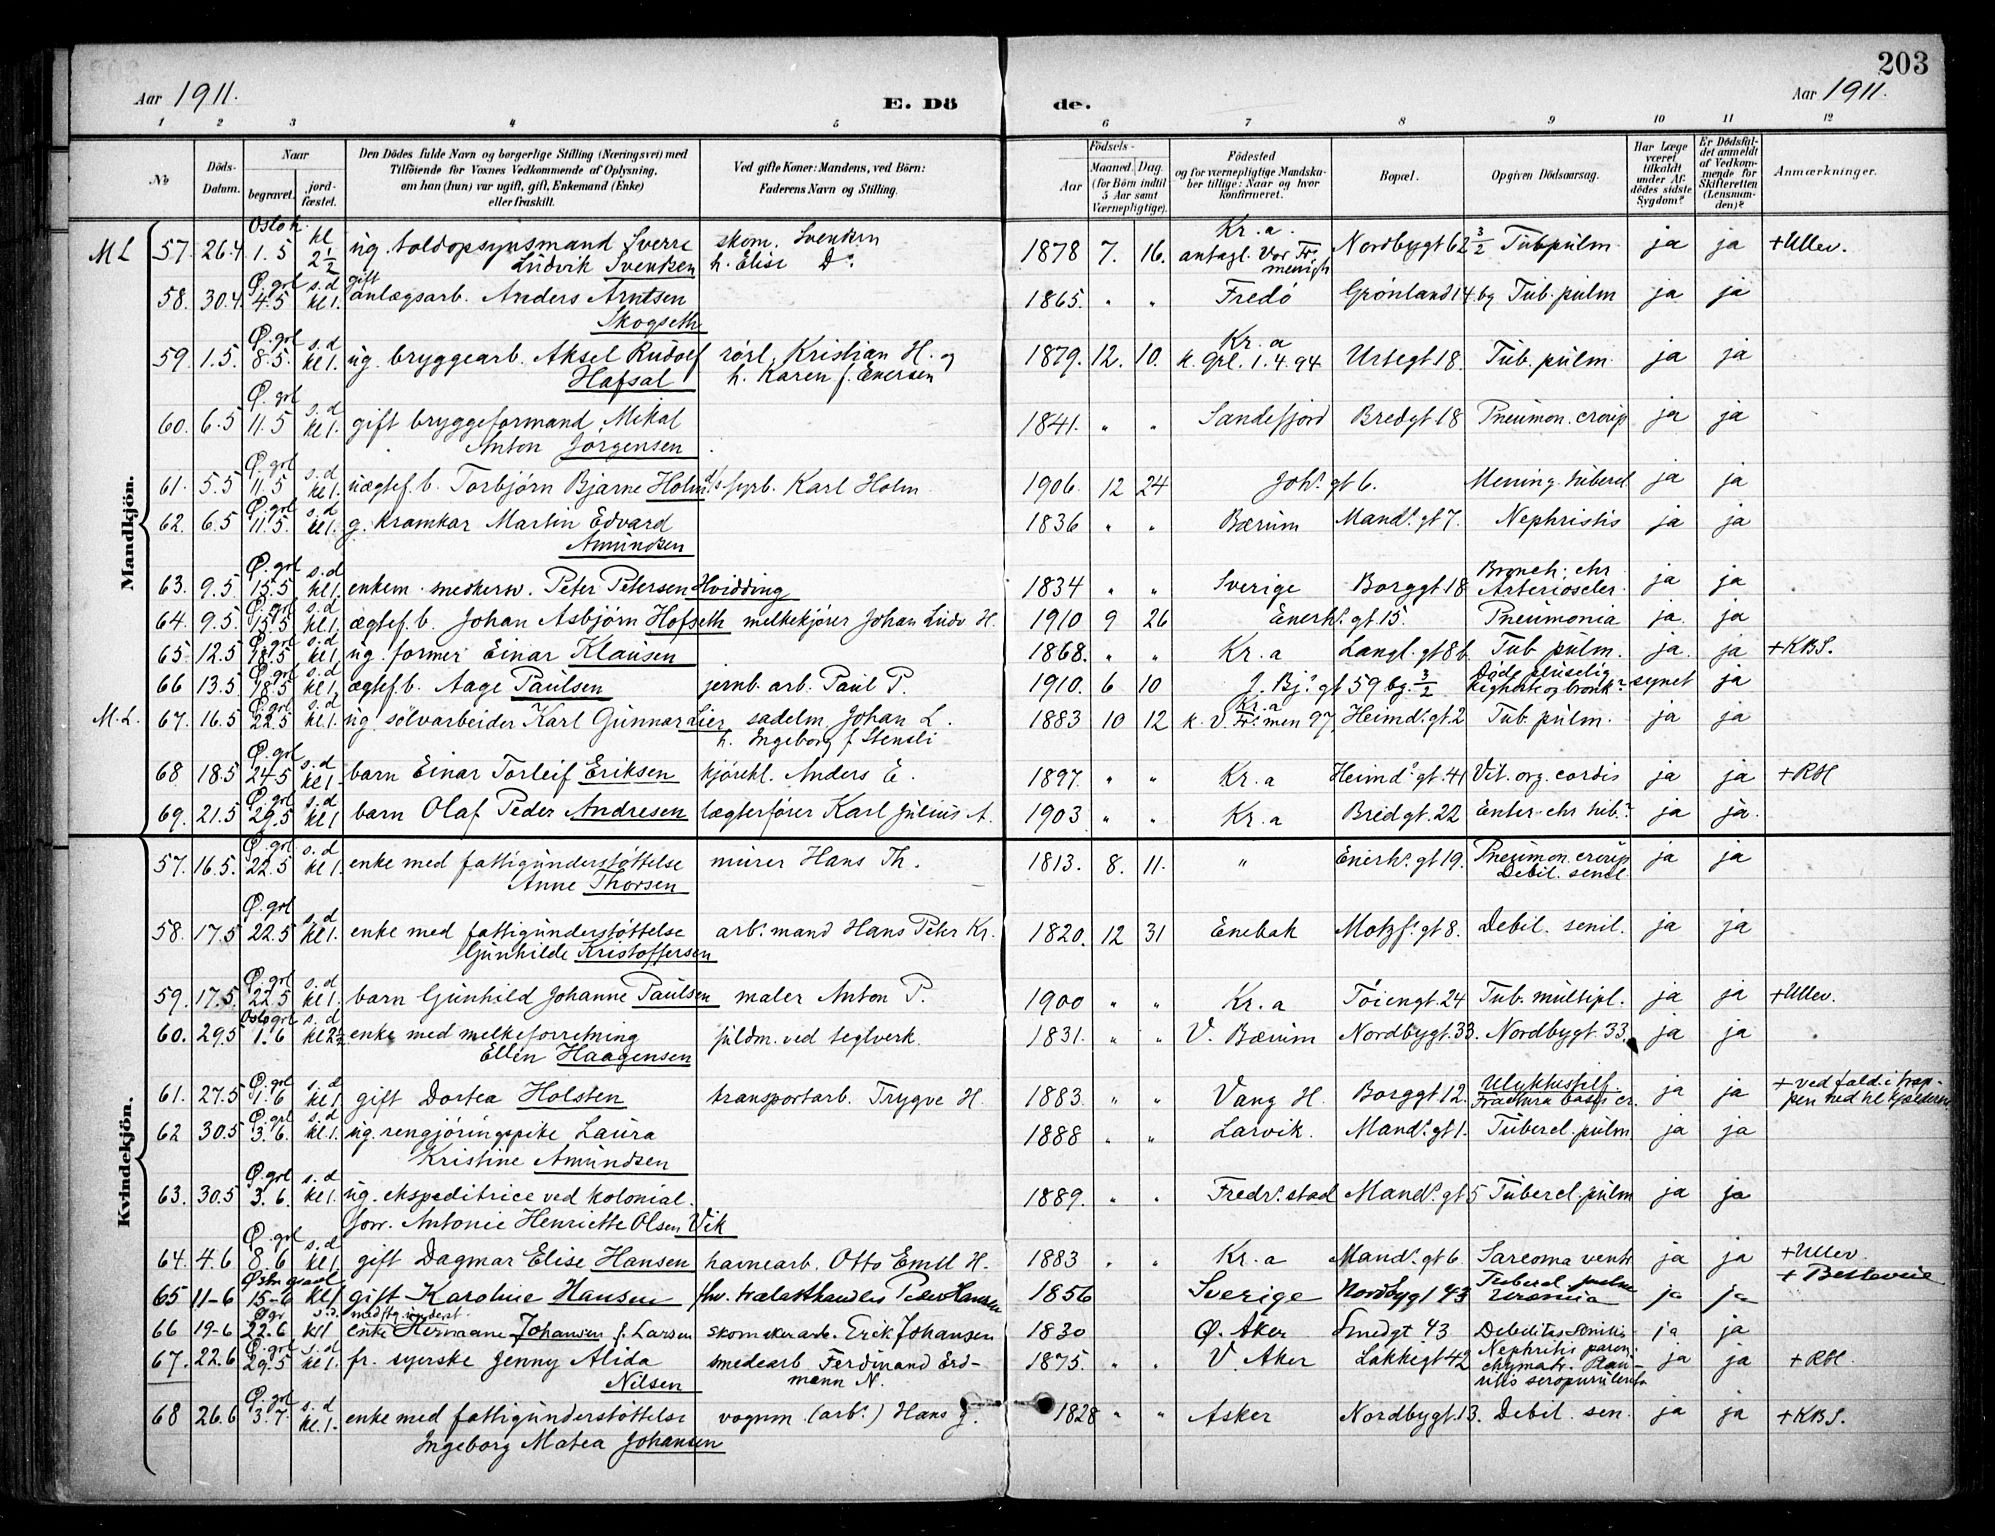 203
Aar 1911.
E. Döde.
Aar 1911.
1 2 3 4 5 6 7 8 9 10 11 12
No
Döds-Datum.
Naar
begravet.
jord-fæstet.
Den Dödes fulde Navn og borgerlige Stilling (Næringsvei) med
Tilföiende for Voxnes Vedkommende af Oplysning,
om han (hun) var ugift, gift, Enkemand (Enke)
eller fraskilt.
Ved gifte Koner: Mandens, ved Börn:
Faderens Navn og Stilling.
Födsels-
Aar
Maaned. Dag.
(for Börn indtil
5 Aar samt
Værnepligtige).
Födested
og for værnepligtige Mandska-
ber tillige: Naar og hvor
konfirmeret.
Bopæl.
Opgiven Dödsaarsag.
Har Læge
været
tilkaldt
under Af-
dödes sidste
Sygdom?
Er Dödsfal-
det anmeldt
af Vedkom-
mende for
Skifteretten
(Lensman-
den)?
Anmærkninger.
Mandkjön.
M L 57. 26.4 Oslo k. 1.5 kl 2½ ug. toldopsynsmand Sverre skom. Svendsen 1878 7. 16. Kr.a. antagl. Vor Fr. menigh Nordbygt 62 3/2 Tub pulm ja ja + Ullev.
Ludvik Svendsen h. Elise Do.
58. 30.4 Ø. grl 4.5 s.d kl 1. gift anlægsarb. Anders Arntsen 1865. " " Fredö Grönland 14 bg Tub. pulm ja ja
Skogseth
59. 1.5 Ø. grl 8.5 s.d kl 1. ug. bryggearb. Aksel Rudolf rörl. Kristian H. og 1879. 12. 10. Kr.a k. Grl. 1.4.94 Urtegt 18. Tub. pulm. ja ja
Hafsal h. Karen f. Enersen
60. 6.5 Ø. grl 11.5 s.d kl 1. gift bryggeformand Mikal 1841. " " Sandefjord Bredgt 18 Pneumon. croup ja ja
Anton Jörgensen
61. 5.5 Ø. grl 11.5 s.d kl 1. uægtef. b. Torbjörn Bjarne Holm Karl Holm 1906. 12 24 Johs. gt 6. Mening. tubercl ja ja
62. 6.5 Ø. grl 11.5. s.d kl 1. g. kramkar Martin Edvard 1836 " " Bærum Mands. gt 7. Nephritis ja ja
Amundsen
63. 9.5 Ø. grl 15.5 s.d kl 1. enkem. Peter Petersen Hvidding 1834 " " Sverige Borggt 18 Bronch. chr Arterioscler. ja ja
64. 9.5 Ø. grl 15.5 s.d kl 1. ægtef. b. Johan Asbjörn Hofseth melkekjörer Johan Ludv H. 1910 9 26 Enerh. gt 15. Pneumonia ja. ja
65. 12.5 Ø. grl 18.5 s.d kl 1 ug. former Einar Klausen 1868. " " Kr.a Langl. gt 8b Tub pulm. ja. ja + KBS.
66 13.5 Ø. grl 18.5 s.d kl 1, ægtef. b. Aage Paulsen jernb. arb. Paul P. 1910. 6 10 J. Bj. gt 59 bg. 3/2 Döde pluselig kighoste og bronk. synet ja
M. L. 67. 16.5 Ø. grl 22.5 s.d kl 1 ug. sölvarbeider Karl Gunnar Lier sadelm. Johan L. 1883 10 12 Kr.a k. V. Fr. men 97, Heimd. gt. 2 Tub. pulm. ja ja
h. Ingeborg f. Stensli
68 18.5 Ø. grl 24.5 s.d kl 1. barn Einar Torleif Eriksen kjörekl. Anders E. 1897. " " Kr.a Heimd. gt. 41 Vit. org. cordis ja ja + RH
69. 21.5 Ø. grl 29.5 s.d kl 1 barn Olaf Peder Andresen lægterförer Karl Julius A. 1903 " " Kr.a Bredgt. 22 Enter. chr tub. ja ja.
Kvindekjön.
57. 16.5. Ø. grl 22.5 s.d kl 1. enke med fattigunderstöttelse murer Hans Th. 1813. 8. 11. " Enerh. gt 19. Pneumon. croup ja ja
Anne Thorsen Debil. senil
58. 17.5 Ø. grl 22.5 s.d kl 1. enke med fattigunderstöttelse arb. mand Hans Peter Kr. 1820. 12 31 Enebak Motzf. gt 8. Debil. senil. ja ja
Gunhilde Kristoffersen
59. 17.5. Ø. grl 22.5 s.d kl 1. barn Gunhild Johanne Paulsen maler Anton P. 1900 " " Kr.a Töiengt. 24 Tub. multipl. ja ja + Ullev.
60. 29.5 Oslo grl 1.6 s.d kl 2½ enke med melkeforretning fuldm. ved teglverk. 1831. " " V. Bærum Nordbygt. 33. Nordbygt. 33. ja ja
Ellen Haagensen
61. 27.5 Ø. grl 1.6 s.d kl 1. gift Dortea Holsten transportarb. Trygve H. 1883. " " Vang H. Borggt 12. Ulykkestilf. Fractura basis cr. ja ja + ved fald i trap-
pen ned til kjelderen
62 30.5 Ø. grl 3.6. s.d kl 1. ug. rengjöringspike Laura 1888 " " Larvik. Mands. gt 1. Tubercl. pulm ja ja
Kristine Amundsen
63. 30.5 Ø. grl 3.6. s.d kl 1. ug. ekspeditrice ved kolonial. 1889. " " Fredr. stad Mands. gt 5 Tubercl. pulm ja ja
forr. Antonie Henriette Olsen Vik
64. 4.6 Ø. grl 8.6 s.d kl 1. gift Dagmar Elise Hansen havnearb. Otto Emil H. 1883 " " Kr.a Mands. gt 6 Sarcoma ventr ja ja + Ullev.
65 11-6 Østre gravl 15-6 kl 1 gift Karoline Hansen fhv. trælasthandler Peder Hansen 1856 Sverige Nordbygt 43 Tubercl. pulm Uræmia ja ja + Bestevie
66 19-6 Ø gr 22.6 s.d. kl 1 med ftg. underst. enke Hermane Johansen f. Larsen skomakerarb. Erik Johansen 1830 Ø. Aker Smedgt 43 Debilitas senilis ja ja
67. 22.6 Ø. grl 29.5 s.d kl 1. fr. syerske Jenny Alida smedearb Ferdinand Erd- 1875. " " V Aker Lakkegt 42 Nephritis paren- ja ja + RH.
Nilsen mann N. chymatr. Pleu-
ritis seropurulenta
68 26.6 Ø. grl 3.7. s.d kl. 1. enke med fattigunderstöttelse vognm (arb.) Hans J. 1828 " " Asker Nordbygt. 13. Debil. sen. ja ja + KBS.
Ingeborg Matea Johansen